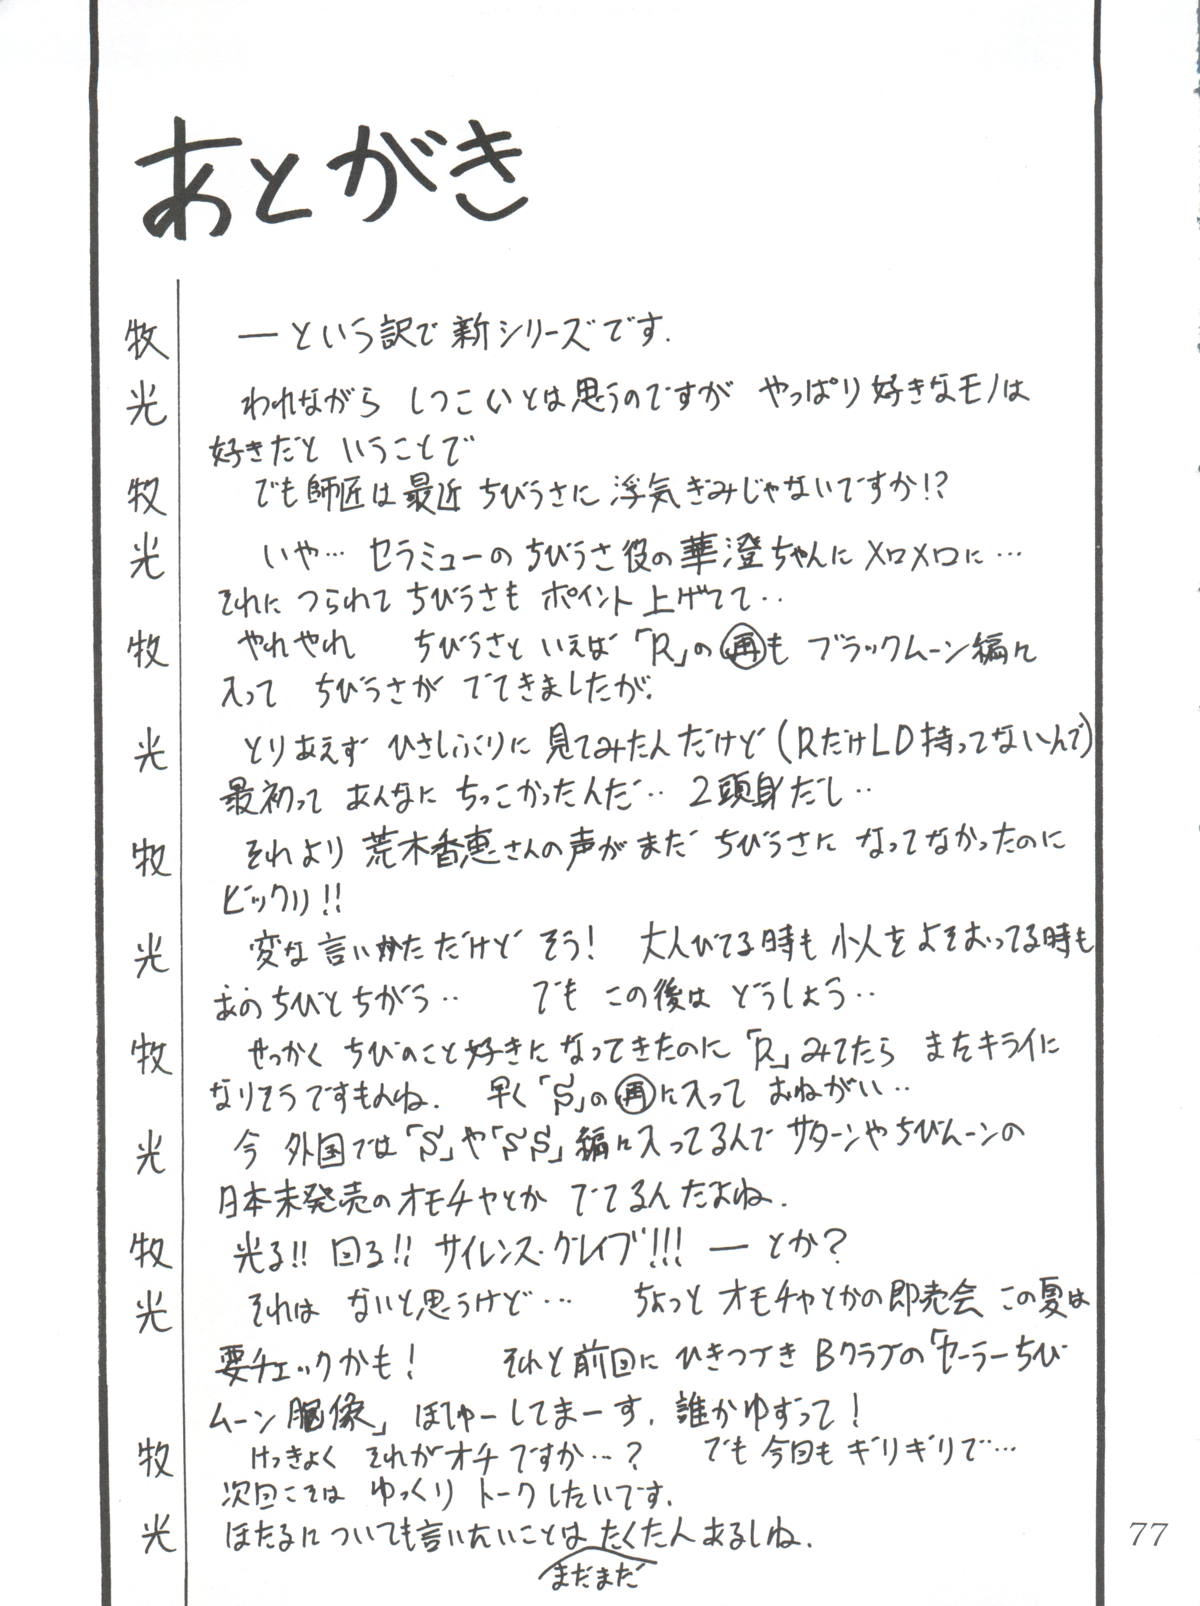 あとがき
牧 ―という訳で新シリーズです.
光 われながら しつこいとは思うのですが やっぱり好きなモノは
好きだと いうことで
牧 でも師匠は最近 ちびうさに 浮気ぎみじゃないですか!?
光 いや… セラミューのちびうさ役の華澄ちゃんにメロメロに…
それに つられて ちびうさも ポイント上げてて‥
牧 やれやれ ちびうさといえば「R」の㊢も ブラックムーン編に
入って ちびうさが でてきましたが.
光 とりあえず ひさしぶりに 見てみたんだけど(RだけLD持ってないんで)
最初って あんなに ちっこかったんだ‥ 2頭身だし‥
牧 それより 荒木香恵さんの声がまだ ちびうさに なってなかったのに
ビックリ!!
光 変な言いかただけど そう! 大人びてる時も 小人をよそおってる時も
あのちびとちがう‥ でも この後は どうしよう‥
牧 せっかく ちびのこと好きになってきたのに「R」みてたら またキライに
なりそうですもんね. 早く「S」の再に入って おねがい‥
光 今 外国では「S」や「SS」編に入ってるんで サターンやちびムーンの
日本未発売のオモチャとか でてるんだよね.
牧 光る!! 回る!! サイレンス・グレイブ!!! ― とか?
光 それは ないと思うけど… ちょっと オモチャとかの即売会 この夏は
要チェックかも! それと前回に ひきつづき Bクラブの「セーラーちび
ムーン胸像」ぼしゅーしてまーす. 誰かゆずって!
牧 けっきょく それがオチですか…? でも今回も ギリギリで…
次回こそは ゆっくり トークしたいです.
光 ほたるについても言いたいことは たくさんあるしね.
まだまだ
77